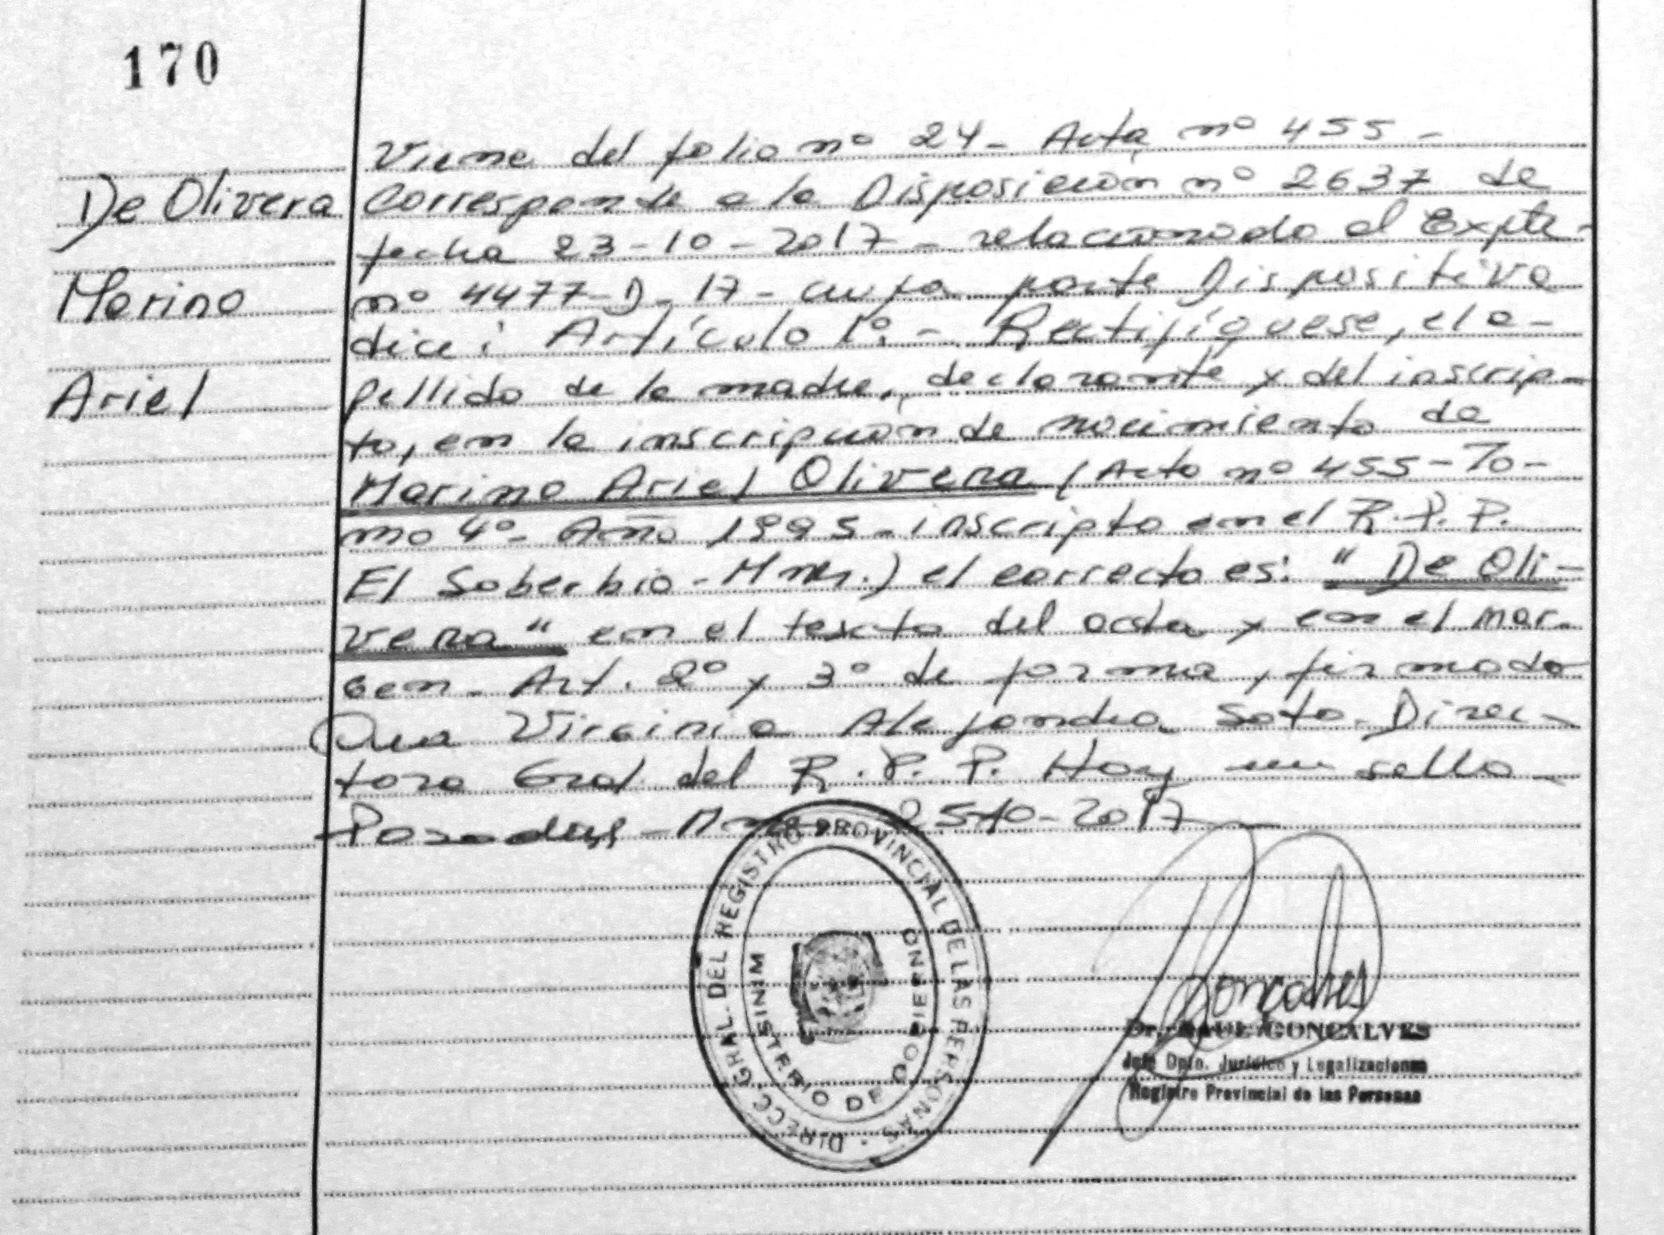 170
De Olivera
Marino
Ariel
Viene del folio nº 24 - Acta nº 455 -
Corresponde a la Disposición nº 2637 de
fecha 23-10-2017 - relacionado al Expte.
nº 4477-D-17 - cuya parte Dispositiva
dice: Artículo 1º. - Rectifíquese, el a-
pellido de la madre, declarante y del inscrip-
to, en la inscripción de nacimiento de
Marino Ariel Olivera (Acta nº 455 - To-
mo 4º - Año 1995 - inscripto en el R.P.P.
El Soberbio - Mnes.) el correcto es: "De Oli-
vera" en el texto del acta y en el mar-
gen - Art. 2º y 3º de forma, firmado
Dra Virginia Alejandra Soto - Direc-
tora Gral. del R.P.P. Hay un sello -
Posadas, - 25-10-2017
DIRECC. GRAL. DEL REGISTRO PROVINCIAL DE LAS PERSONAS
MINISTERIO DE GOBIERNO
Gonçalves
Dr. RAUL GONCALVES
Jefe Dpto. Jurídico y Legalizaciones
Registro Provincial de las Personas